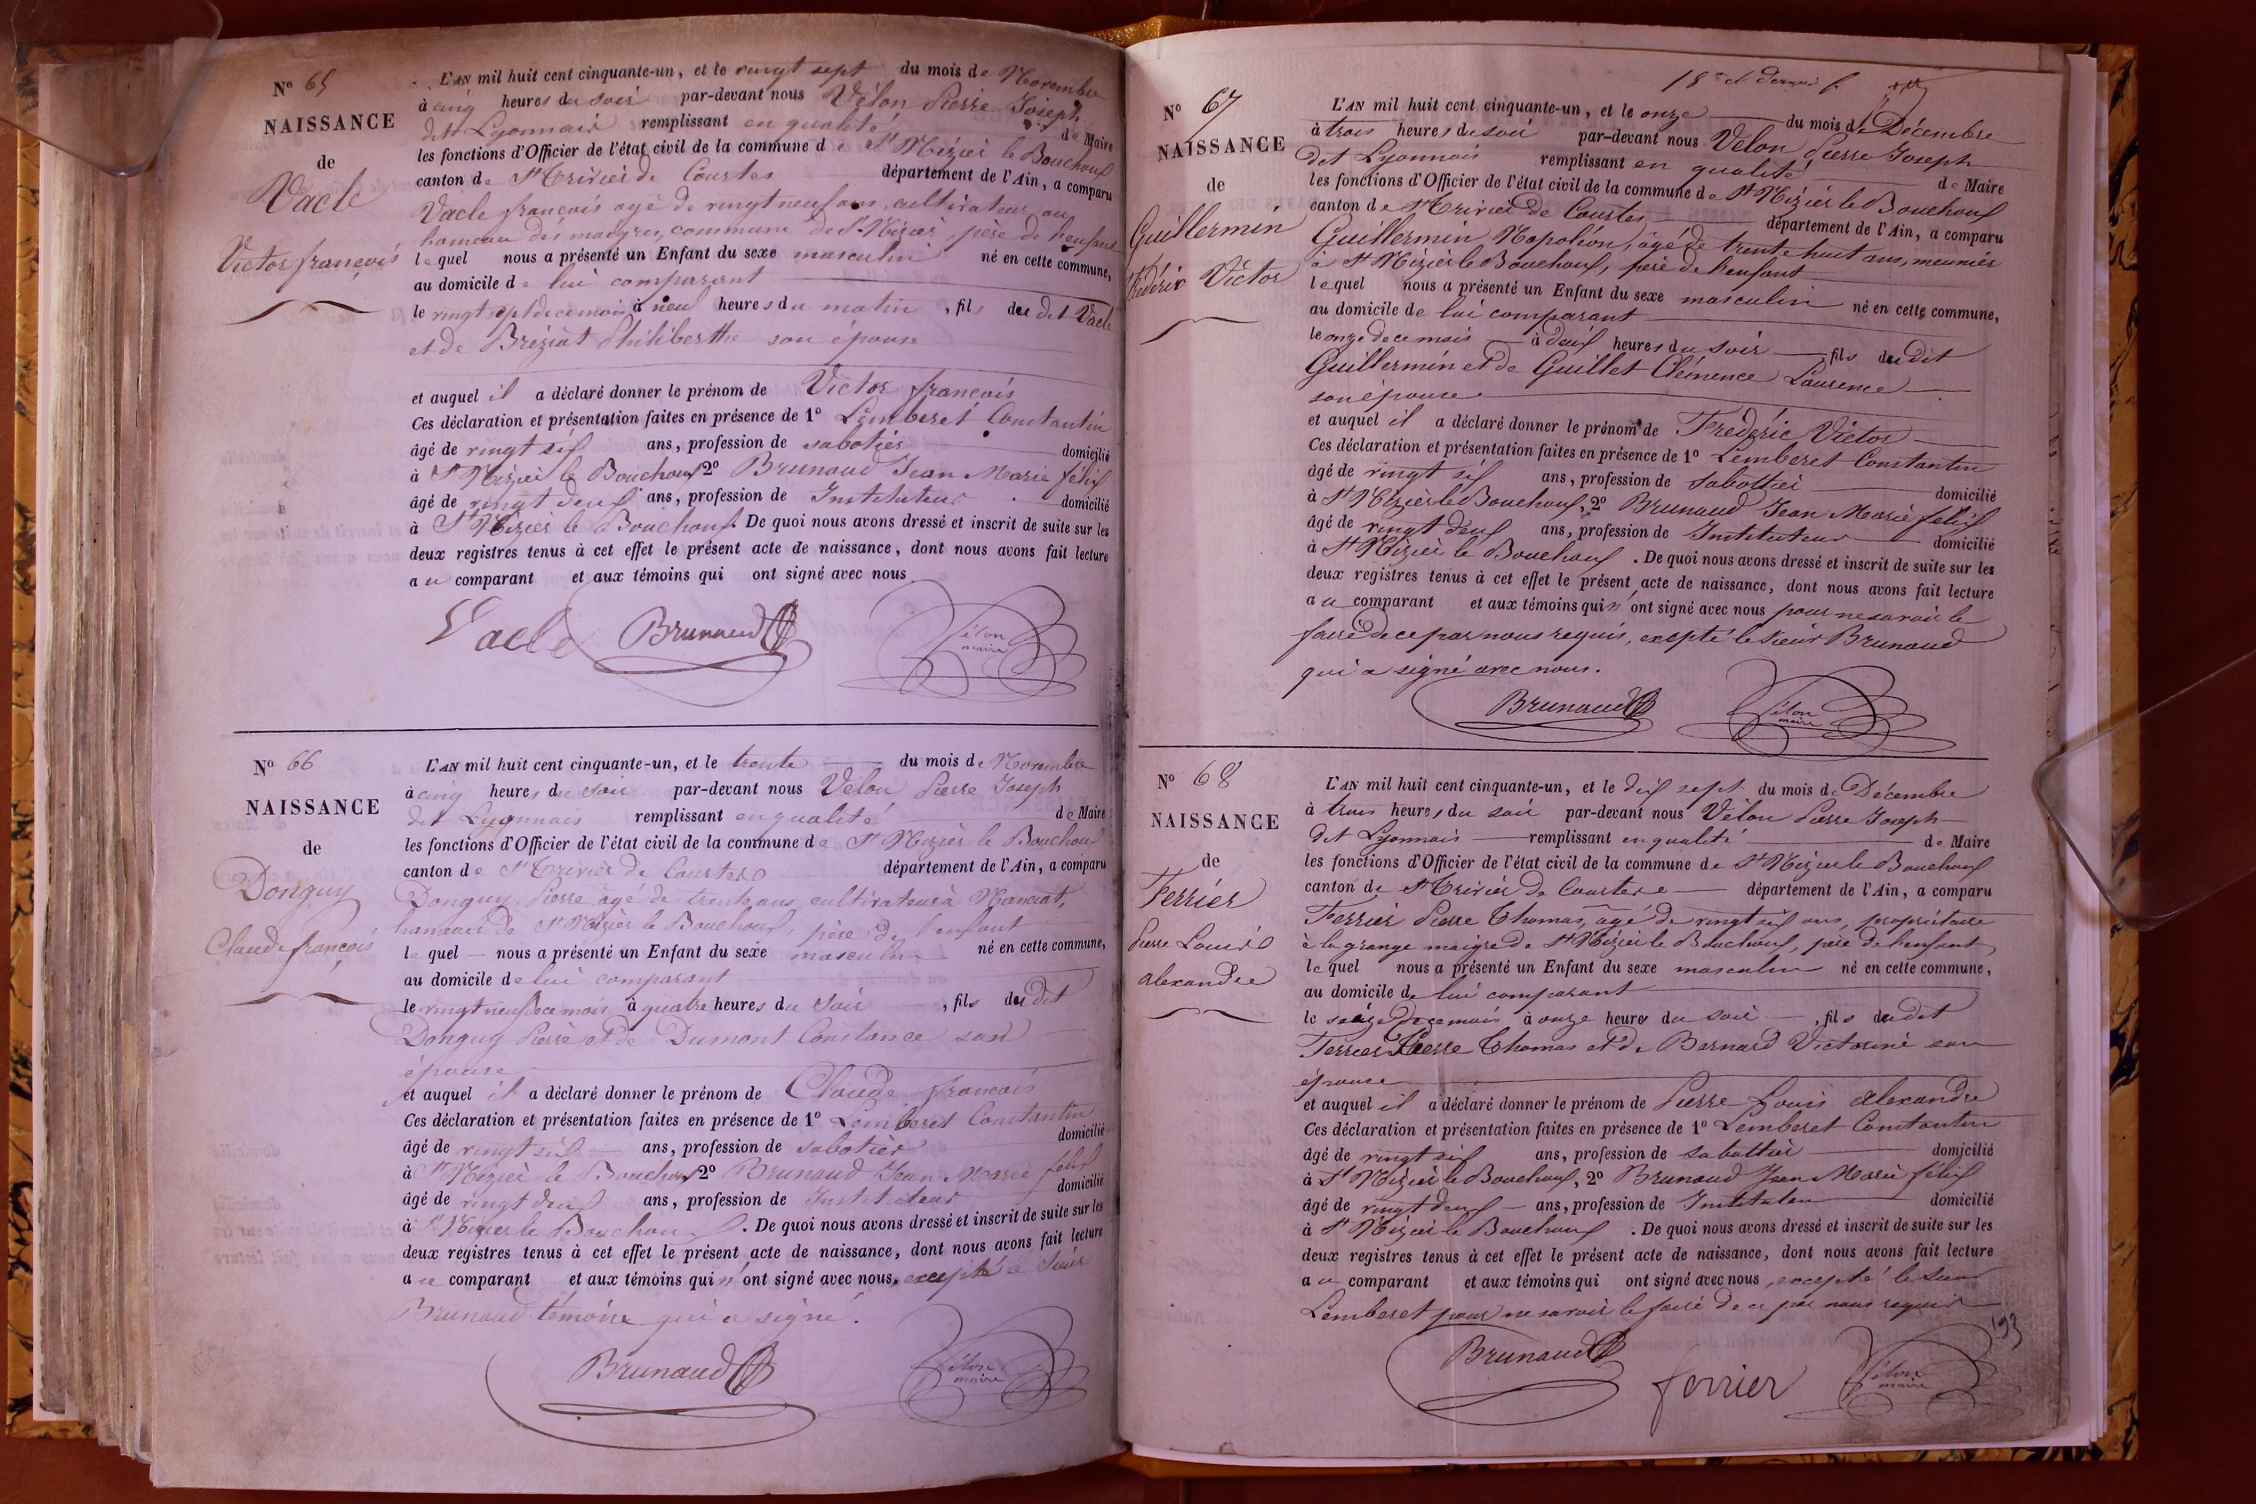 Nº 65
NAISSANCE
de
Vacle
Victor françois
L'AN mil huit cent cinquante-un, et le vingt sept du mois de Novembre
à cinq heures du soir par-devant nous Vélon Pierre Joseph
dit Lyonnais remplissant en qualité de Maire
les fonctions d'Officier de l'état civil de la commune de St Nizier le Bouchoux
canton de St Trivier de Courtes département de l'Ain, a comparu
Vacle françois agé de vingt neuf ans, cultivateur au
hameau des maigres, commune de St Nizier, père de l'enfant
lequel nous a présenté un Enfant du sexe masculin né en cette commune,
au domicile de lui comparant
le vingt sept de ce mois à neuf heures du matin, fils du dit Vacle
et de Bréziat Philiberthe son épouse
et auquel il a déclaré donner le prénom de Victor françois
Ces déclaration et présentation faites en présence de 1º Lemberet Constantin
âgé de vingt six ans, profession de sabotier domicilié
à St Nizier le Bouchoux 2º Brunaud Jean Marie félix
âgé de vingt deux ans, profession de Instituteur domicilié
à St Nizier le Bouchoux. De quoi nous avons dressé et inscrit de suite sur les
deux registres tenus à cet effet le présent acte de naissance, dont nous avons fait lecture
au comparant et aux témoins qui ont signé avec nous
Vacle Brunaud Vélon
maire
Nº 66
NAISSANCE
de
Donguy
Claude françois
L'AN mil huit cent cinquante-un, et le trente du mois de Novembre
à cinq heures du soir par-devant nous Vélon Pierre Joseph
dit Lyonnais remplissant en qualité de Maire
les fonctions d'Officier de l'état civil de la commune de St Nizier le Bouchoux
canton de St Trivier de Courtes département de l'Ain, a comparu
Donguy Pierre agé de trente ans, cultivateur à
hameau de St Nizier le Bouchoux, père de l'enfant
lequel nous a présenté un Enfant du sexe masculin né en cette commune,
au domicile de lui comparant
le vingt neuf de ce mois à quatre heures du soir, fils du dit
Donguy Pierre et de Dumont Constance son
épouse
et auquel il a déclaré donner le prénom de Claude françois
Ces déclaration et présentation faites en présence de 1º Lemberet Constantin
âgé de vingt six ans, profession de sabotier domicilié
à St Nizier le Bouchoux 2º Brunaud Jean Marie félix
âgé de vingt deux ans, profession de Instituteur domicilié
à St Nizier le Bouchoux. De quoi nous avons dressé et inscrit de suite sur les
deux registres tenus à cet effet le présent acte de naissance, dont nous avons fait lecture
au comparant et aux témoins qui n'ont signé avec nous, excepté le Sieur
Brunaud témoin qui a signé.
Brunaud Vélon
maire
18e et dernier f.
Nº 67
NAISSANCE
de
Guillermin
Frédéric Victor
L'AN mil huit cent cinquante-un, et le onze du mois de Décembre
à trois heures du soir par-devant nous Vélon Pierre Joseph
dit Lyonnais remplissant en qualité de Maire
les fonctions d'Officier de l'état civil de la commune de St Nizier le Bouchoux
canton de St Trivier de Courtes département de l'Ain, a comparu
Guillermin Napoléon, âgé de trente huit ans, meunier
à St Nizier le Bouchoux, père de l'enfant
lequel nous a présenté un Enfant du sexe masculin né en cette commune,
au domicile de lui comparant
le onze de ce mois à deux heures du soir fils du dit
Guillermin et de Guillet Clémence Laurence
son épouse
et auquel il a déclaré donner le prénom de Frédéric Victor
Ces déclaration et présentation faites en présence de 1º Lemberet Constantin
âgé de vingt six ans, profession de sabottier domicilié
à St Nizier le Bouchoux, 2º Brunaud Jean Marie félix
âgé de vingt deux ans, profession de Instituteur domicilié
à St Nizier le Bouchoux. De quoi nous avons dressé et inscrit de suite sur les
deux registres tenus à cet effet le présent acte de naissance, dont nous avons fait lecture
au comparant et aux témoins qui n'ont signé avec nous pour ne savoir le
faire de ce par nous requis, exepté le sieur Brunaud
qui a signé avec nous.
Brunaud Vélon
maire
Nº 68
NAISSANCE
de
Ferrier
Pierre Louis
alexandre
L'AN mil huit cent cinquante-un, et le dix sept du mois de Décembre
à trois heures du soir par-devant nous Vélon Pierre Joseph
dit Lyonnais remplissant en qualité de Maire
les fonctions d'Officier de l'état civil de la commune de St Nizier le Bouchoux
canton de St Trivier de Courtes département de l'Ain, a comparu
Ferrier Pierre Thomas, âgé de vingt six ans, propriétaire
à la grange maigre de St Nizier le Bouchoux, père de l'enfant
lequel nous a présenté un Enfant du sexe masculin né en cette commune,
au domicile de lui comparant
le seize de ce mois à onze heures du soir, fils du dit
Ferrier Pierre Thomas et de Bernard Victorine son
épouse
et auquel il a déclaré donner le prénom de Pierre Louis alexandre
Ces déclaration et présentation faites en présence de 1º Lemberet Constantin
âgé de vingt six ans, profession de sabottier domicilié
à St Nizier le Bouchoux, 2º Brunaud Jean Marie félix
âgé de vingt deux ans, profession de Instituteur domicilié
à St Nizier le Bouchoux. De quoi nous avons dressé et inscrit de suite sur les
deux registres tenus à cet effet le présent acte de naissance, dont nous avons fait lecture
au comparant et aux témoins qui ont signé avec nous, excepté le sieur
Lemberet pour ne savoir le faire de ce par nous requis
193
Brunaud ferrier Vélon
maire